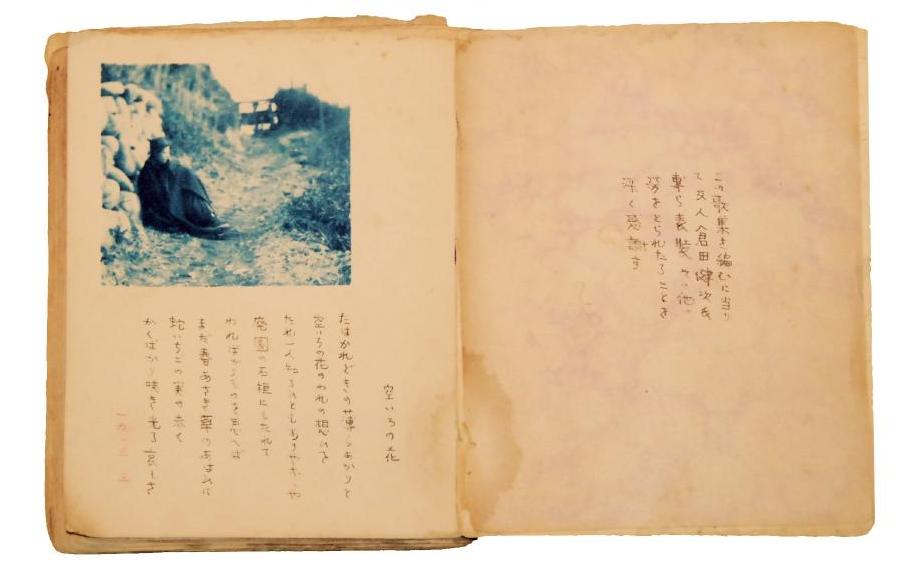 この歌集を編むに当り
て友人倉田健次氏
専ら表装その他の
労をとられたることを
深く感謝す
空いろの花
たはかれどきの薄らあかりと
空いろの花のわれの想ひを
たれ一人知るひともありやなしや
廃園の石垣にもたれて
わればかりものを思へば
まだ春あさき草のあはひに
蛇いちごの実の赤く
かくばかり咲き光る哀しさ